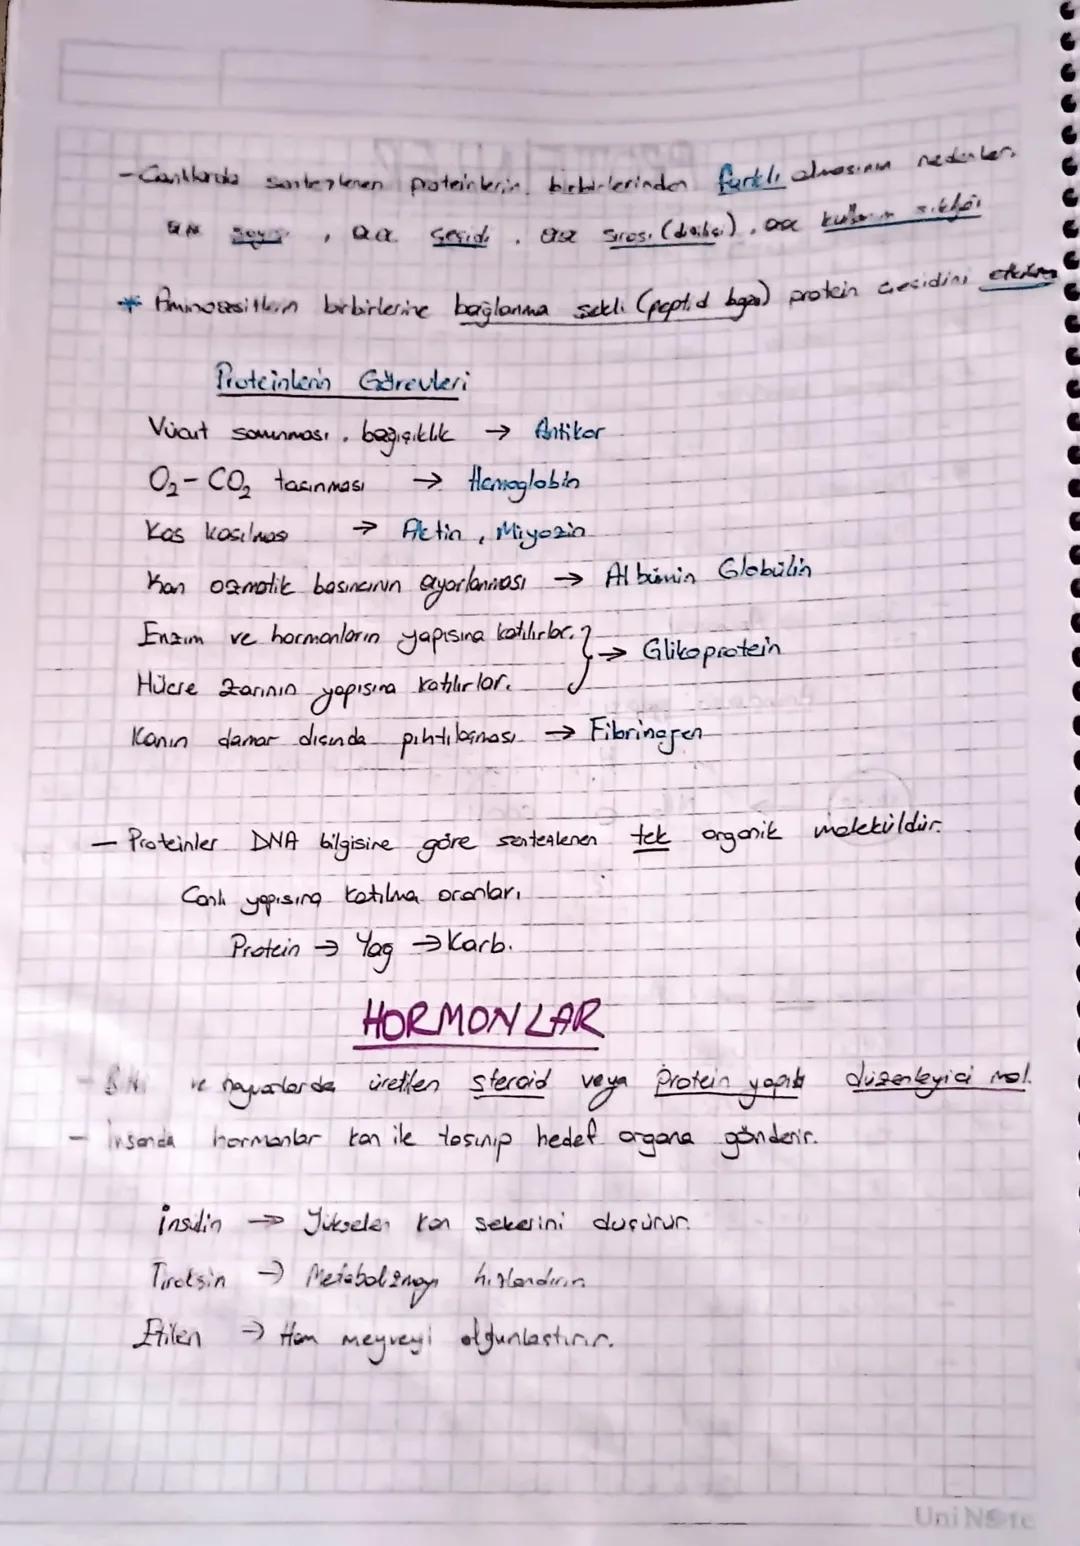 - Canlılarda sentezlenen proteinlerin birbirlerinden farklı olmasının nedenleri
aa sayısı, aa çeşidi, aa sırası (dizilişi), aa kullanım sıklığı
* Aminoasitlerin birbirlerine bağlanma şekli (peptid bağı) protein çeşidini etkilemez
Proteinlerin Görevleri
Vücut savunması, bağışıklık → Antikor
O₂ - CO₂ taşınması → Hemoglobin
Kas kasılması → Aktin, Miyozin
Kan ozmotik basıncının ayarlanması → Albümin Globülin
Enzim ve hormonların yapısına katılırlar.
} → Glikoprotein
Hücre zarının yapısına katılırlar.
Kanın damar dışında pıhtılaşması → Fibrinojen
- Proteinler DNA bilgisine göre sentezlenen tek organik moleküldür.
Canlı yapısına katılma oranları
Protein → Yağ → Karb.
HORMONLAR
- ve hayvanlarda üretilen steroid veya protein yapılı düzenleyici mol.
- İnsanda hormonlar kan ile taşınıp hedef organa gönderir.
İnsülin → Yükselen kan şekerini düşürür.
Tiroksin → Metabolizmayı hızlandırır.
Etilen → Ham meyveyi olgunlaştırır.
UniNote